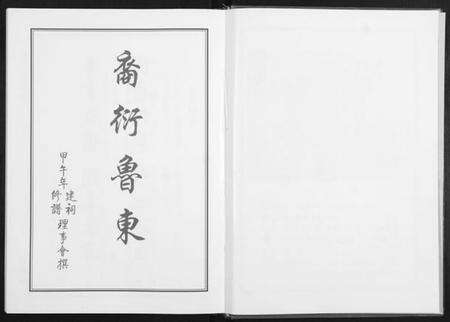 裔衍魯東
甲午年建祠
修譜理事會撰